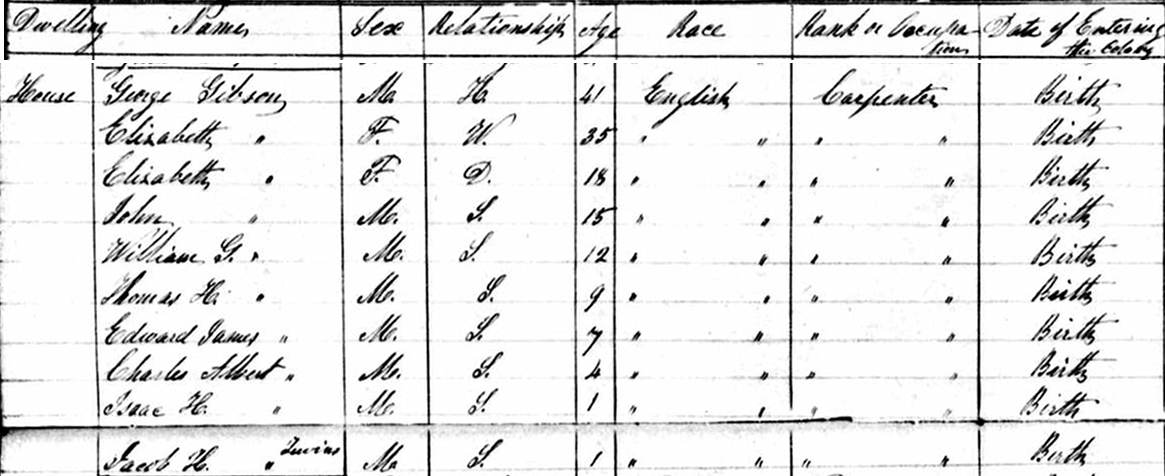 Dwelling Name Sex Relationship Age Race Rank or Occupation Date of Entering the Colony
House George Gibson M. H. 41 English Carpenter Birth
Elizabeth " F. W. 35 " " " " Birth
Elizabeth " F. D. 18 " " " " Birth
John " M. S. 15 " " " " Birth
William G. " M. S. 12 " " " " Birth
Thomas H. " M. S. 9 " " " " Birth
Edward James " M. S. 7 " " " " Birth
Charles Albert " M. S. 4 " " " " Birth
Isaac H. " M. S. 1 " " " " Birth
Jacob H. " Twins M. S. 1 " " " " Birth